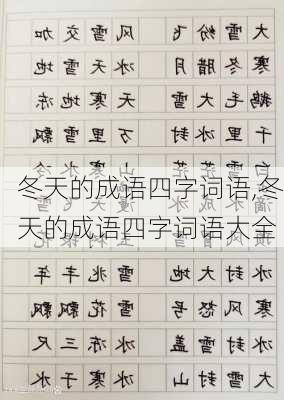 大雪纷飞 风雪交加
寒冬腊月 冰天雪地
鹅毛大雪 天寒地冻
千里冰封 万里雪飘
冬天的成语四字词语,冬
天的成语四字词语大全
冰封大地 雪兆丰年
寒风怒号 雪花飘飘
冰封雪盖 冰冻三尺
大雪封山 冰寒于水